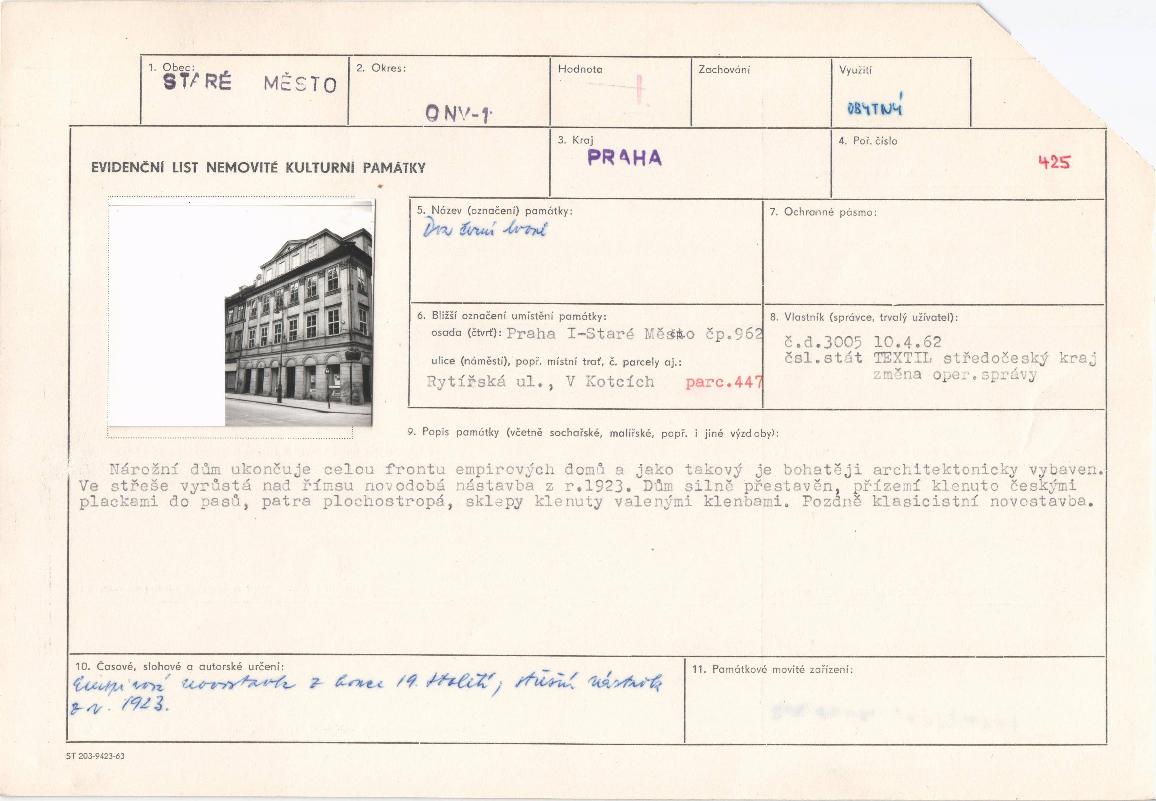 1. Obec:
STARÉ MĚSTO
2. Okres:
ONV-1
Hodnota
Zachování
Využití
OBYTNÝ
EVIDENČNÍ LIST NEMOVITÉ KULTURNÍ PAMÁTKY
3. Kraj
PRAHA
4. Poř. číslo
425
5. Název (označení) památky:
Dva černí
7. Ochranné pásmo:
6. Bližší označení umístění památky:
osada (čtvrť): Praha I-Staré Město čp.962
ulice (náměstí), popř. místní trať, č. parcely aj.:
Rytířská ul., V Kotcích parc.447
8. Vlastník (správce, trvalý uživatel):
č.d.3005 10.4.62
čsl.stát TEXTIL středočeský kraj
změna oper.správy
9. Popis památky (včetně sochařské, malířské, popř. i jiné výzdoby):
Nárožní dům ukončuje celou frontu empirových domů a jako takový je bohatěji architektonicky vybaven.
Ve střeše vyrůstá nad římsu novodobá nástavba z r.1923. Dům silně přestavěn, přízemí klenuto českými
plackami do pasů, patra plochostropá, sklepy klenuty valenými klenbami. Pozdně klasicistní novostavba.
10. Časové, slohové a autorské určení:
Empirová novostavba z konce 19. století, střešní nástavba
z r. 1923.
11. Památkové movité zařízení:
ST 203-9423-63